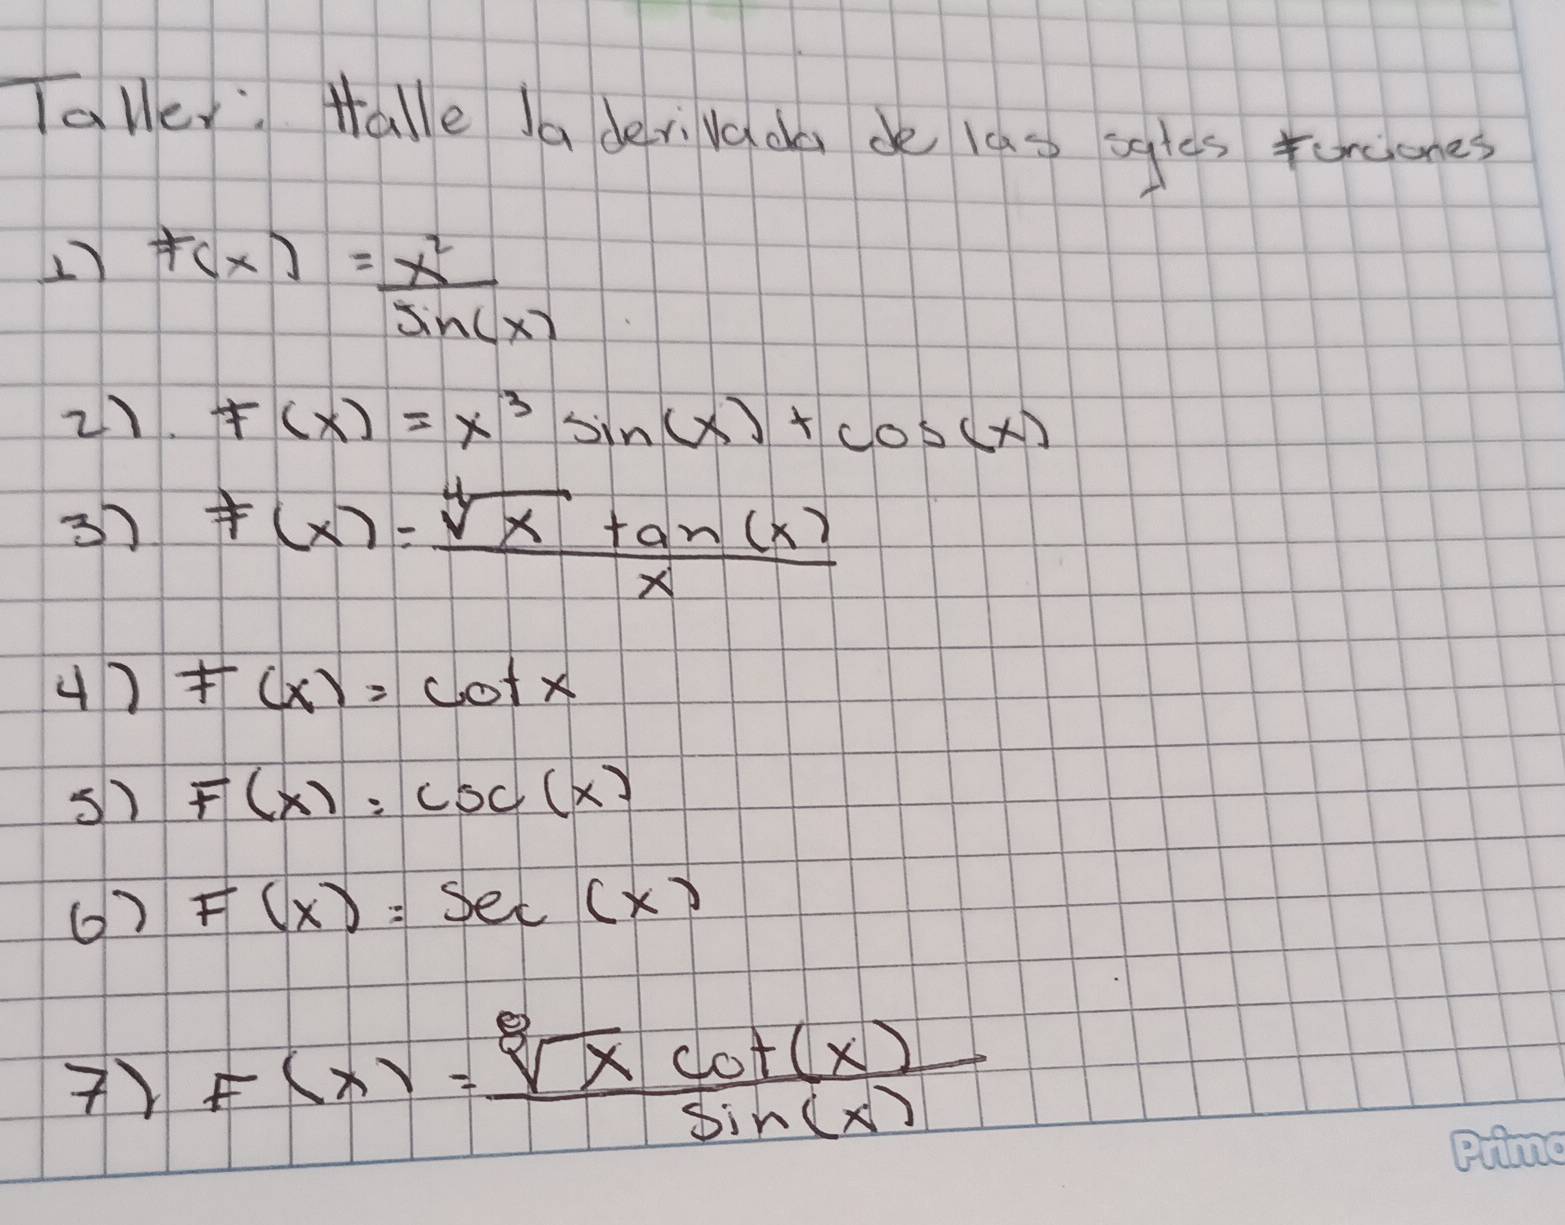 Taller: Halle la derivada de las sgtes funciones
1) F(x) = x² / sin(x)
2). F(x) = x³ sin(x) + cos(x)
3) F(x) = ∜x tan(x) / x
4) F(x) = cot x
5) F(x) = csc(x)
6) F(x) = Sec (x)
7) F(x) = ⁸√x cot(x) / sin(x)